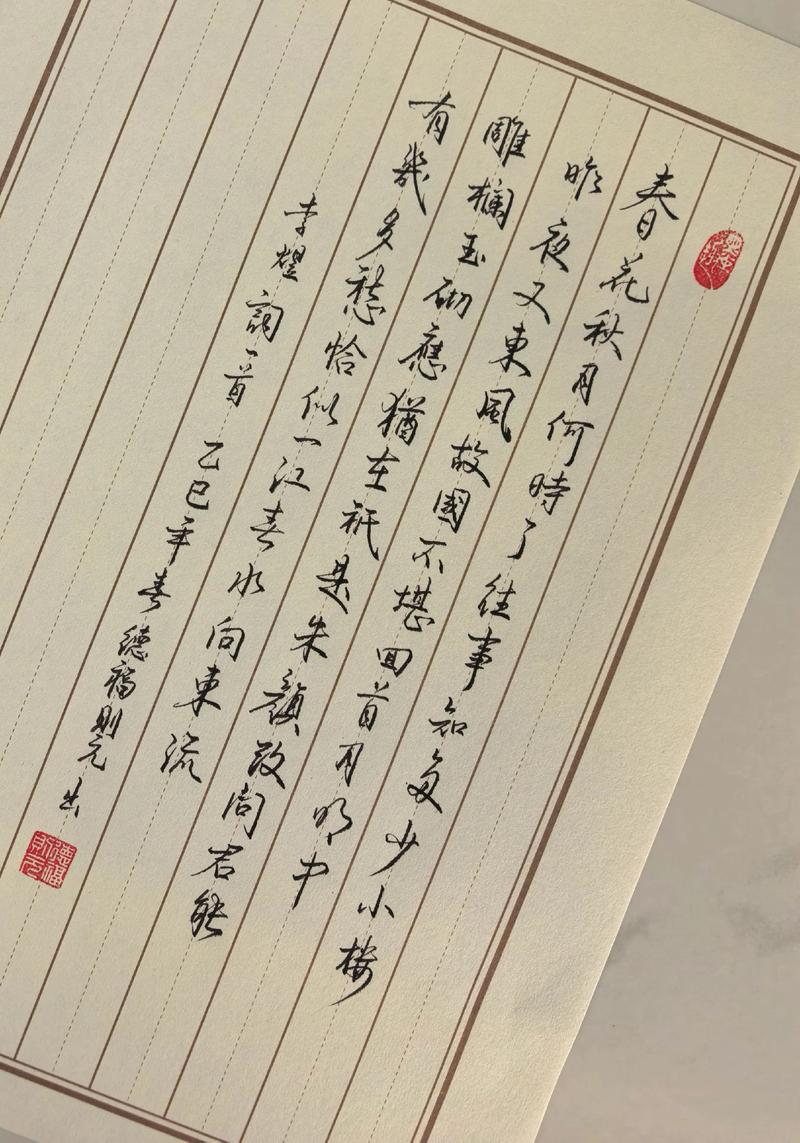 春花秋月何時了往事知多少小樓
昨夜又東風故國不堪回首月明中
雕欄玉砌應猶在祇是朱顏改問君能
有幾多愁恰似一江春水向東流
李煜詞一首 乙巳年春 德福則元书
德福則元